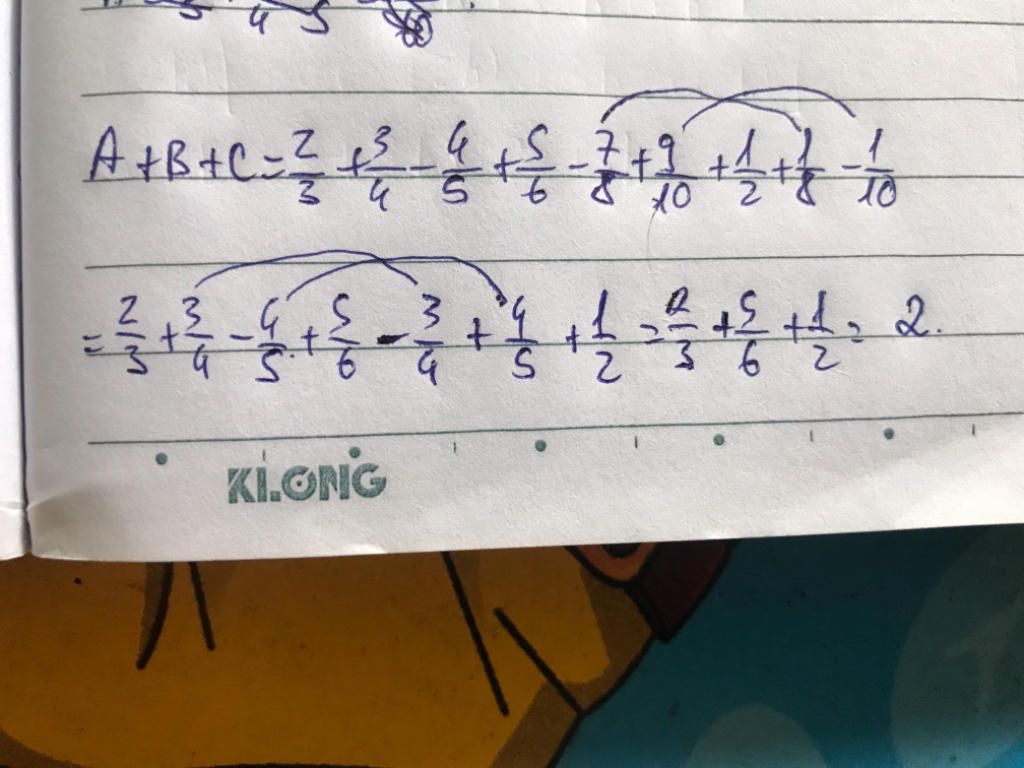 A + B + C = 2/3 + 3/4 - 4/5 + 5/6 - 7/8 + 9/10 + 1/2 + 1/8 - 1/10
= 2/3 + 3/4 - 4/5 + 5/6 - 3/4 + 4/5 + 1/2 = 2/3 + 5/6 + 1/2 = 2.
KLONG